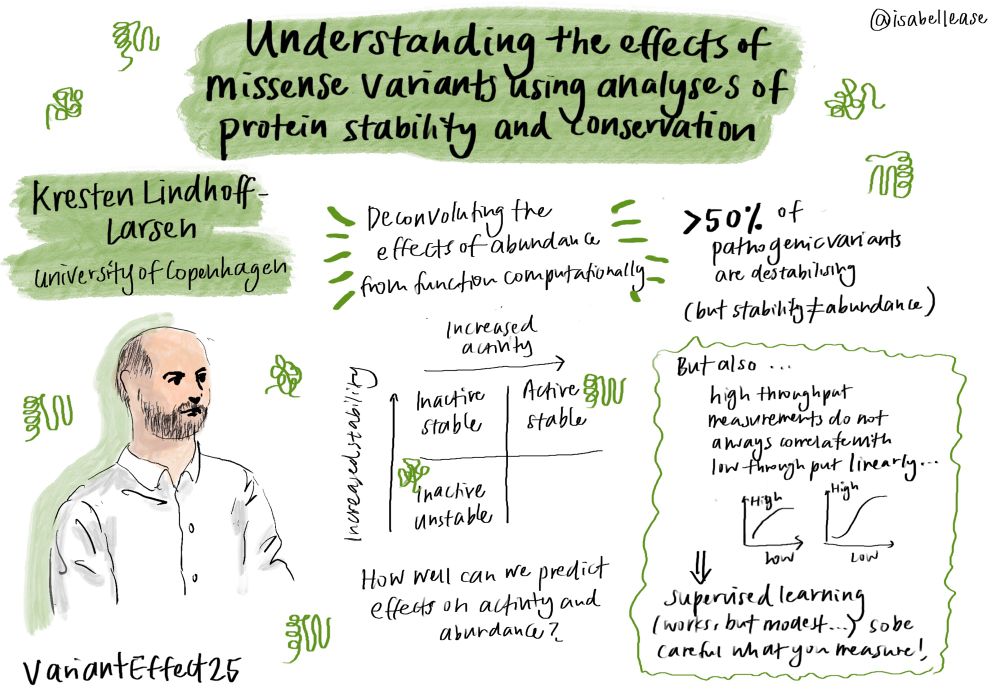 @isabellease
Understanding the effects of
missense variants using analyses of
protein stability and conservation
Kresten Lindhoff-
Larsen
university of Copenhagen
Deconvoluting the
effects of abundance
from function computationally
>50% of
pathogenic variants
are destabilising
(but stability ≠ abundance)
Increased
activity
Increased stability
Inactive
stable
Active
stable
Inactive
unstable
How well can we predict
effects on activity and
abundance?
But also ...
high throughput
measurements do not
always correlate with
low throughput linearly...
High
Low
High
Low
supervised learning
(works, but modest...) so be
careful what you measure!
VariantEffect25